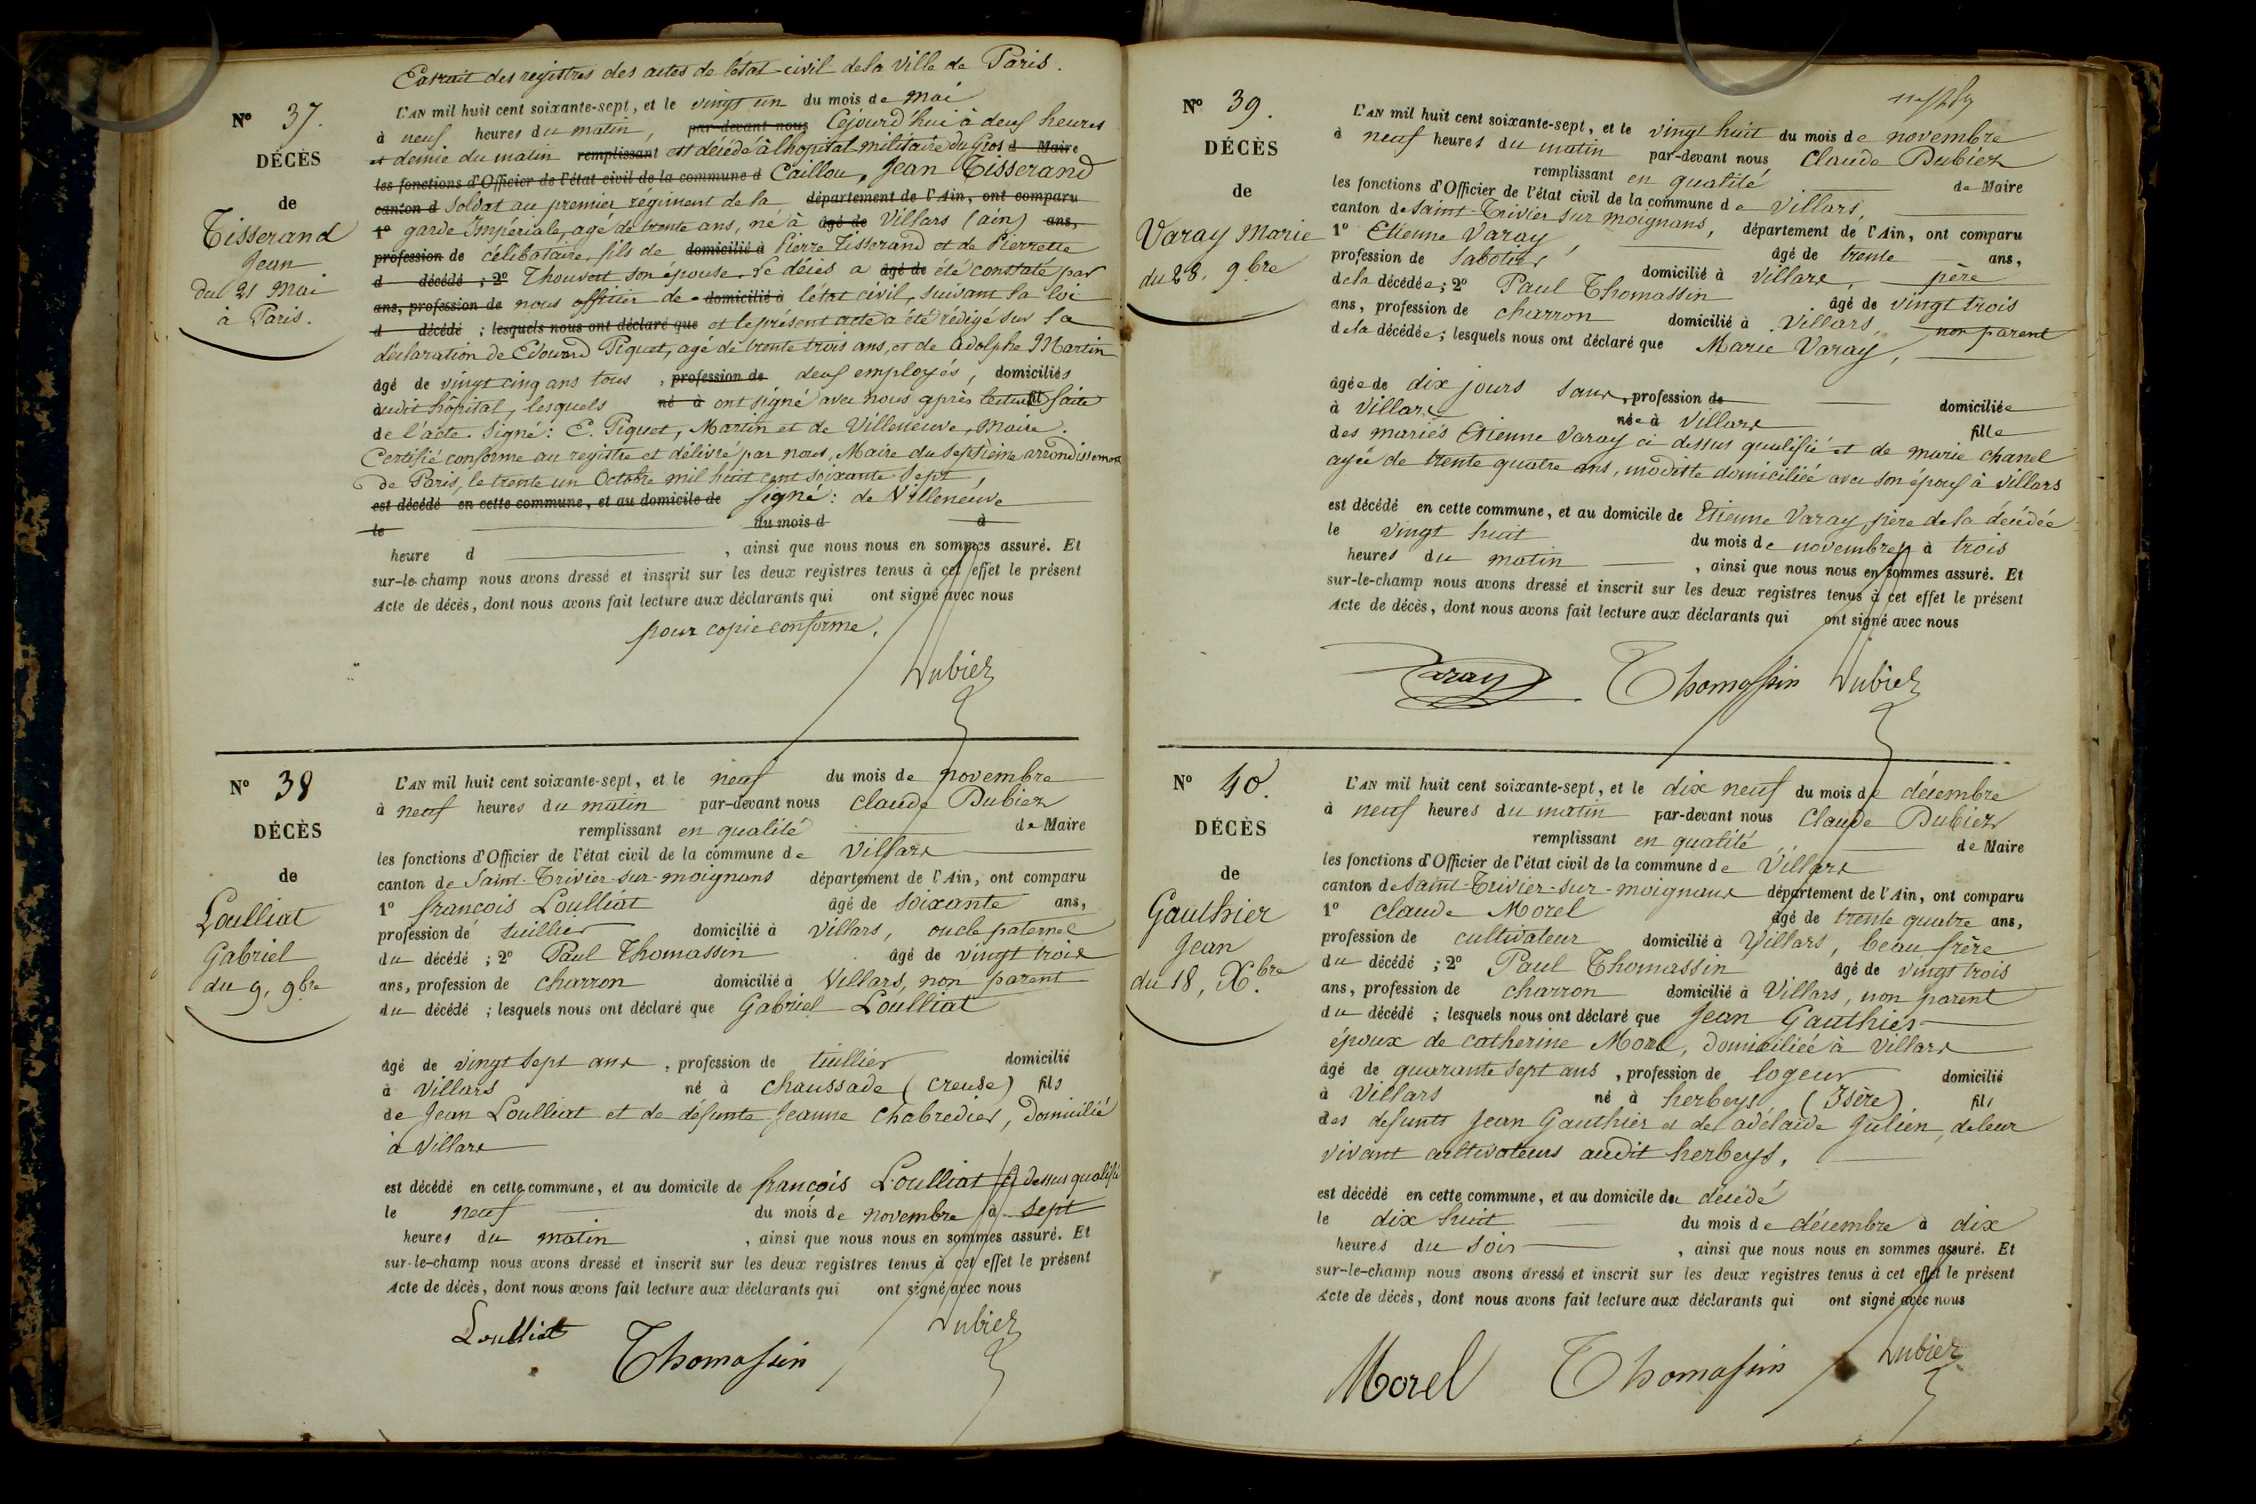 Extrait des registres des actes de l'état civil de la Ville de Paris.
N° 37.
DÉCÈS
de
Tisserand
Jean
du 21 Mai
à Paris.
L'AN mil huit cent soixante-sept, et le vingt un du mois de mai
à neuf heures du matin, par-devant nous Cejourd'hui à deux heures
et demie du matin remplissant est décédé à l'hopital militaire du Gros d Maire
les fonctions d'Officier de l'état civil de la commune d Caillou, Jean Tisserand
canton d Soldat au premier régiment de la département de l'Ain, ont comparu
1° garde Impériale, agé de trente ans, né à âgé de Villars (ain) ans,
profession de célibataire, fils de domicilié à Pierre Tisserand et de Pierrette
d décédé ; 2° Thouvert son épouse. Le décès a âgé de été constaté par
ans, profession de nous officier de domicilié à l'état civil, suivant la loi
d décédé ; lesquels nous ont déclaré que et le présent acte a été rédigé sur la
déclaration de Edouard Piquet, agé de trente trois ans, et de Adolphe Martin
âgé de vingt cinq ans tous , profession de deux employés, domiciliés
audit hôpital, lesquels né à ont signé avec nous après lecture fils faite
de l'acte. Signé : E. Piquet, Martin et de Villeneuve, Maire.
Certifié conforme au registre et délivré par nous, Maire du Septième arrondissement
de Paris, le trente un Octobre mil huit cent soixante Sept
est décédé en cette commune, et au domicile de signé : de Villeneuve
le du mois d à
heure d , ainsi que nous nous en sommes assuré. Et
sur-le-champ nous avons dressé et inscrit sur les deux registres tenus à cet effet le présent
Acte de décès, dont nous avons fait lecture aux déclarants qui ont signé avec nous
pour copie conforme.
Dubiez
N° 38
DÉCÈS
de
Loulliat
Gabriel
du 9, 9bre
L'AN mil huit cent soixante-sept, et le neuf du mois de novembre
à neuf heures du matin par-devant nous Claude Dubiez
remplissant en qualité de Maire
les fonctions d'Officier de l'état civil de la commune de Villars
canton de Saint-Trivier-sur-moignans département de l'Ain, ont comparu
1° françois Loulliat âgé de soixante ans,
profession de tuillier domicilié à Villars, oncle paternel
du décédé ; 2° Paul Thomassin âgé de vingt trois
ans, profession de charron domicilié à Villars, non parent
du décédé ; lesquels nous ont déclaré que Gabriel Loulliat
âgé de vingt sept ans , profession de tuillier domicilié
à Villars né à chaussade (creuse) fils
de Jean Loulliat et de défunte Jeanne Chabredier, domicilié
à Villars
est décédé en cette commune, et au domicile de françois Loulliat ci dessus qualifié
le neuf du mois de novembre à sept
heures du matin , ainsi que nous nous en sommes assuré. Et
sur-le-champ nous avons dressé et inscrit sur les deux registres tenus à cet effet le présent
Acte de décès, dont nous avons fait lecture aux déclarants qui ont signé avec nous
Loulliat Thomassin Dubiez
N° 39.
DÉCÈS
de
Varay Marie
du 28, 9bre
L'AN mil huit cent soixante-sept, et le vingt huit du mois de novembre
à neuf heures du matin par-devant nous Claude Dubiez
remplissant en qualité de Maire
les fonctions d'Officier de l'état civil de la commune de Villars,
canton de Saint-Trivier sur moignans, département de l'Ain, ont comparu
1° Etienne Varay, âgé de trente ans,
profession de Sabotier domicilié à Villars, père
de la décédée ; 2° Paul Thomassin âgé de vingt trois
ans, profession de charron domicilié à Villars, non parent
de la décédée ; lesquels nous ont déclaré que Marie Varay,
âgée de dix jours sans, profession de domiciliée
à Villars née à Villars fille
des mariés Etienne Varay ci dessus qualifié et de marie chanel
agée de trente quatre ans, modiste domiciliée avec son époux à Villars
est décédé en cette commune, et au domicile de Etienne Varay, père de la décédée
le vingt huit du mois de novembre à trois
heures du matin , ainsi que nous nous en sommes assuré. Et
sur-le-champ nous avons dressé et inscrit sur les deux registres tenus à cet effet le présent
Acte de décès, dont nous avons fait lecture aux déclarants qui ont signé avec nous
Varay Thomassin Dubiez
N° 40.
DÉCÈS
de
Gauthier
Jean
du 18, Xbre
L'AN mil huit cent soixante-sept, et le dix neuf du mois de décembre
à neuf heures du matin par-devant nous Claude Dubiez
remplissant en qualité de Maire
les fonctions d'Officier de l'état civil de la commune de Villars
canton de Saint-Trivier-sur-moignans département de l'Ain, ont comparu
1° claude Morel âgé de trente quatre ans,
profession de cultivateur domicilié à Villars, beau frère
du décédé ; 2° Paul Thomassin âgé de vingt trois
ans, profession de charron domicilié à Villars, non parent
du décédé ; lesquels nous ont déclaré que Jean Gauthier
époux de catherine Morel, domiciliée à Villars
âgé de quarante sept ans , profession de logeur domicilié
à Villars né à herbeys (Isère) fils
des defunts Jean Gauthier et de adélaide Julien, de leur
vivant cultivateurs audit herbeys,
est décédé en cette commune, et au domicile du décédé
le dix huit du mois de décembre à dix
heures du soir , ainsi que nous nous en sommes assuré. Et
sur-le-champ nous avons dressé et inscrit sur les deux registres tenus à cet effet le présent
Acte de décès, dont nous avons fait lecture aux déclarants qui ont signé avec nous
Morel Thomassin Dubiez